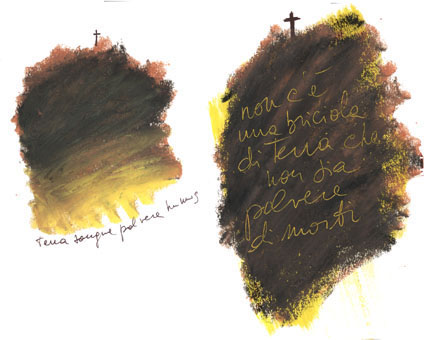 Terra sangue polvere humus
non c'è
una briciola
di Terra che
non sia
polvere
di morti